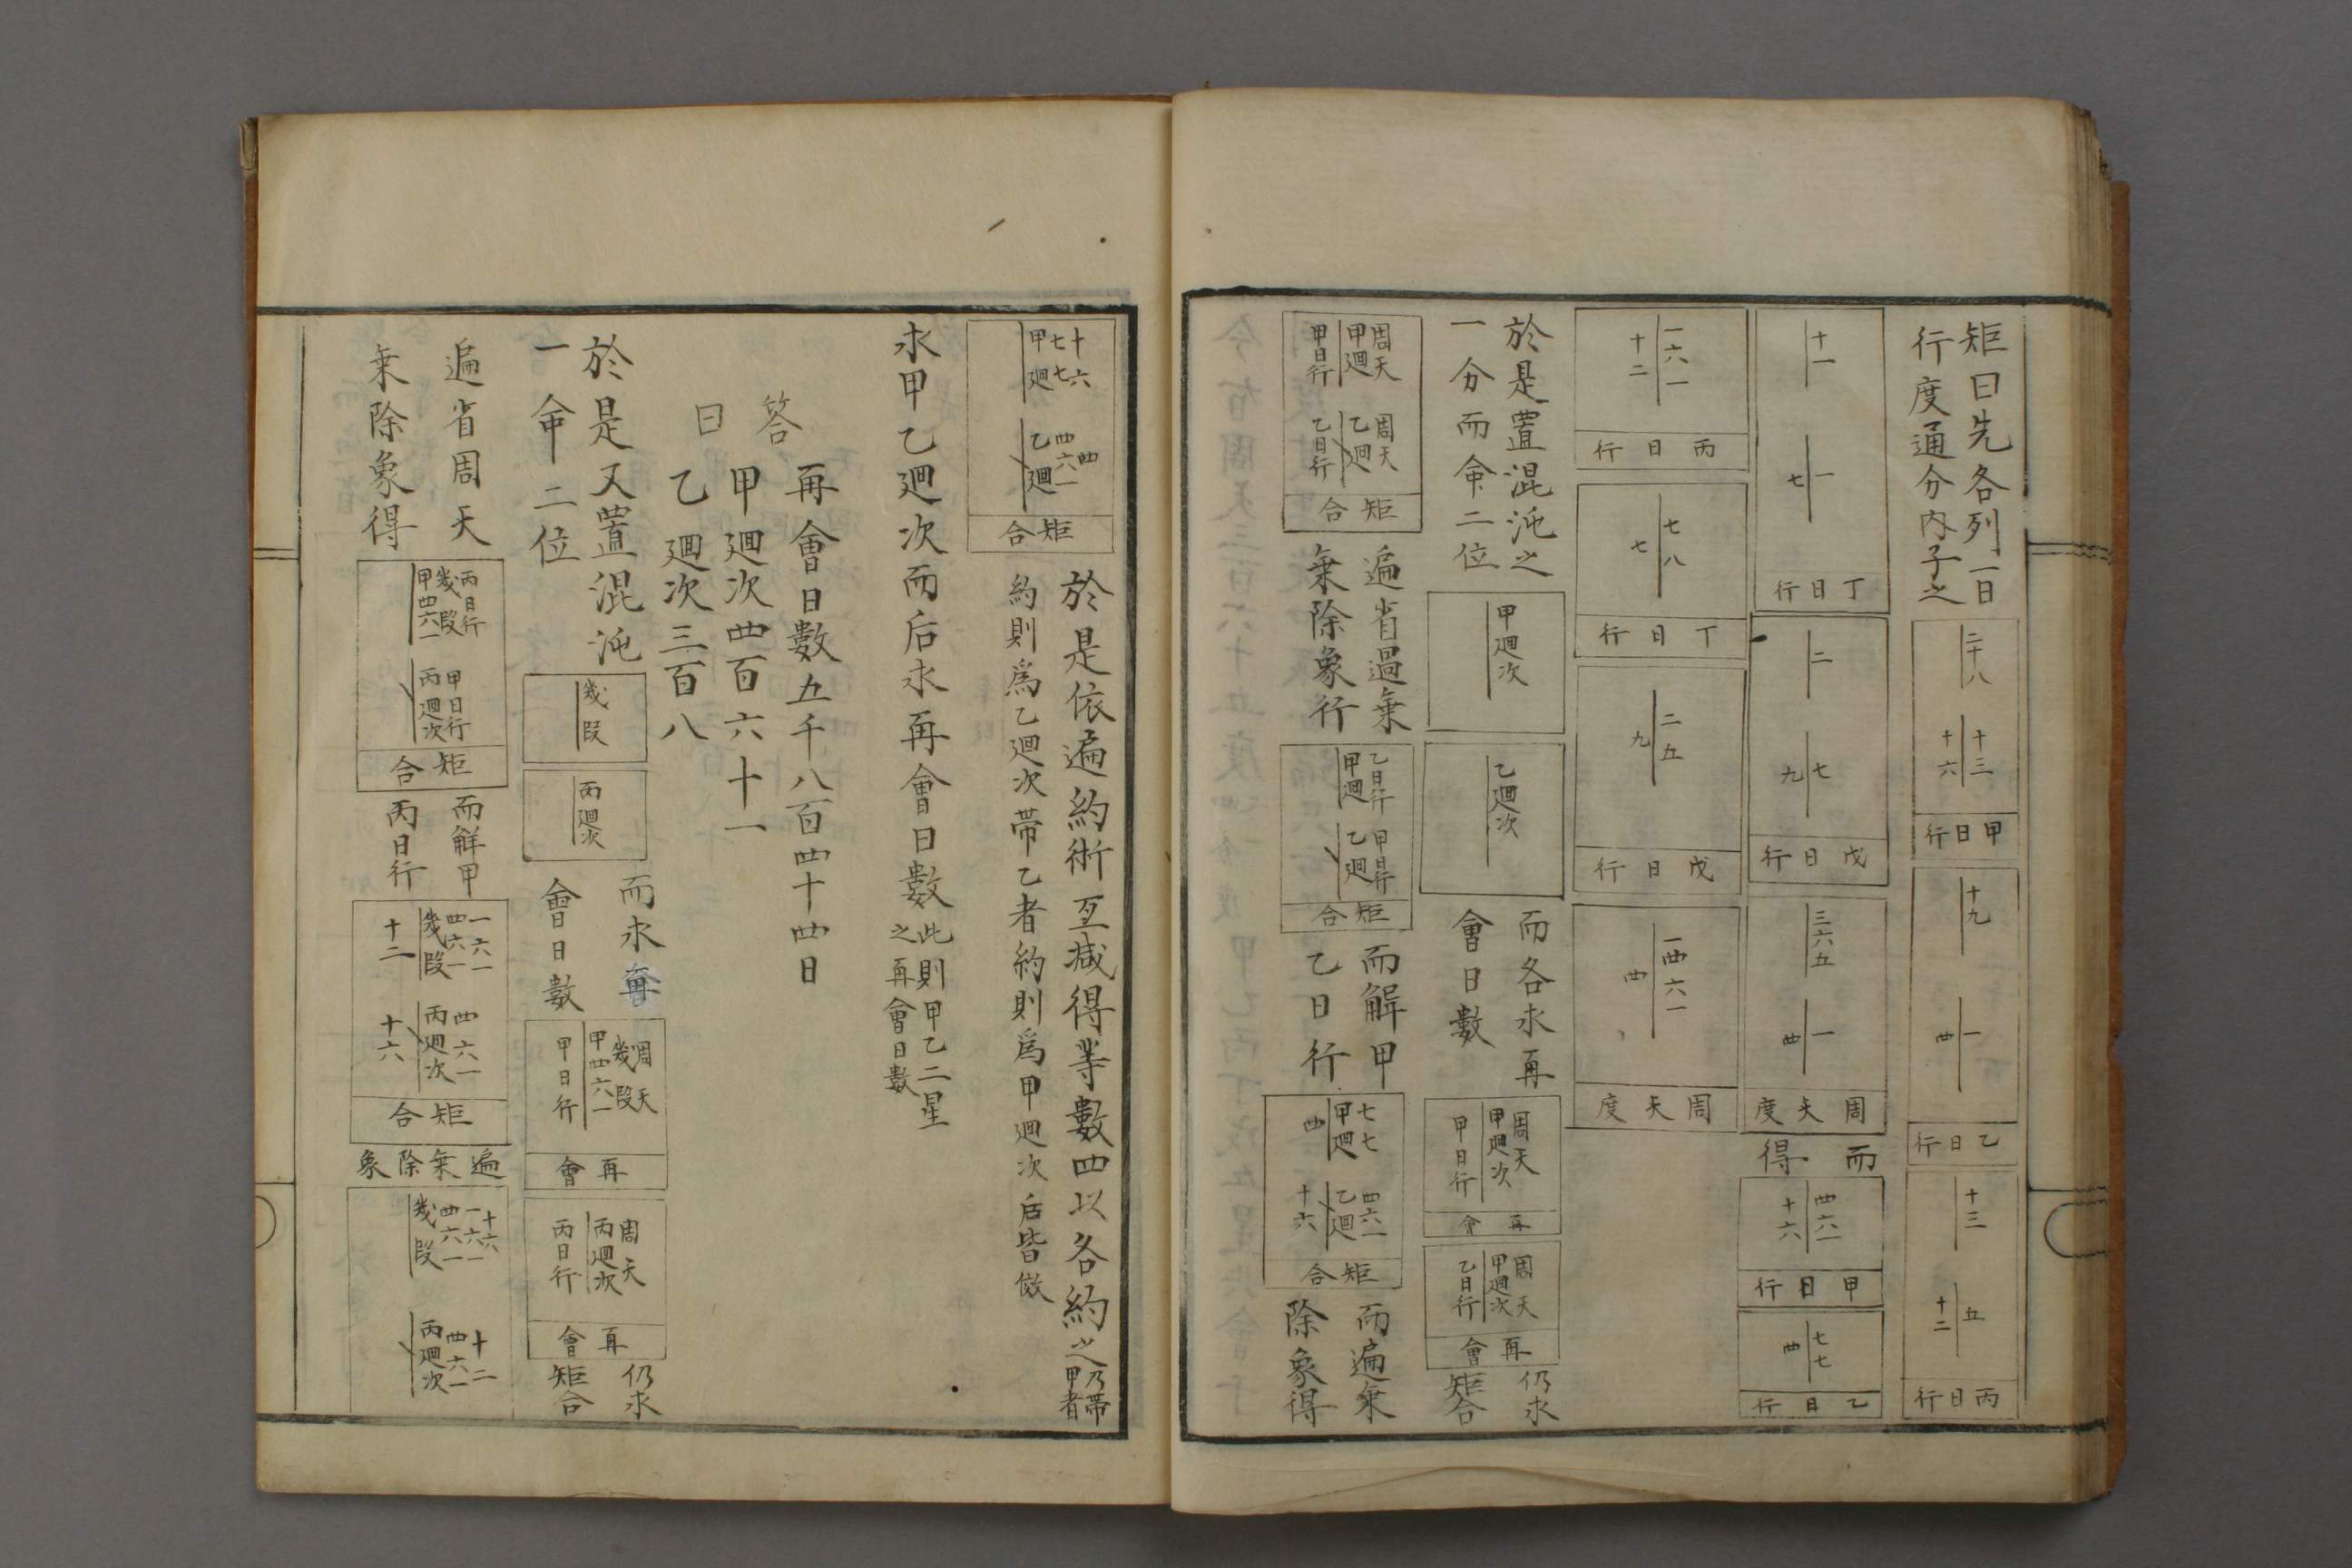 矩曰先各列一日
行度通分內子之
二十八
十三
十六
甲日行
十九
一
四
乙日行
十三
五
十二
丙日行
十一
一
七
丁日行
二
七
九
戊日行
三六五
一
四
周天度
而
得
四六一
十六
甲日行
七七
四
乙日行
一六一
十二
丙日行
七八
七
丁日行
二五
九
戊日行
一四六一
四
周天度
於是置混沌之
一分而命二位
甲廻次
乙廻次
而各求再
會日數
周天
甲廻次
甲日行
再會
周天
甲廻次
乙日行
再會
仍求
矩合
周天
甲廻
甲日行
周天
乙廻
乙日行
矩合
遍省過乗
乗除象行
乙日行
甲廻
甲日行
乙廻
矩合
而解甲
乙日行
七七
甲廻
四
四六一
乙廻
十六
矩合
而遍乗
除象得
十六
七七
甲廻
四
四六一
乙廻
矩合
於是依遍約術互減得等數四以各約之乃帶
甲者
約則爲乙廻次帶乙者約則爲甲廻次后皆倣
求甲乙廻次而后求再會日數此則甲乙二星
之再會日數
答
曰
再會日數五千八百四十四日
甲廻次四百六十一
乙廻次三百八
於是又置混沌
一命二位
幾段
丙廻次
而求再
會日數
周天
幾段
甲四六一
甲日行
再會
周天
丙廻次
丙日行
再會
仍求
矩合
遍省周天
乗除象得
丙日行
幾段
甲四六一
甲日行
丙廻次
矩合
而解甲
丙日行
一六一
四六一
幾段
十二
四六一
丙廻次
十六
矩合
遍乗除象
十六
一六一
四六一
幾段
十二
四六一
丙廻次